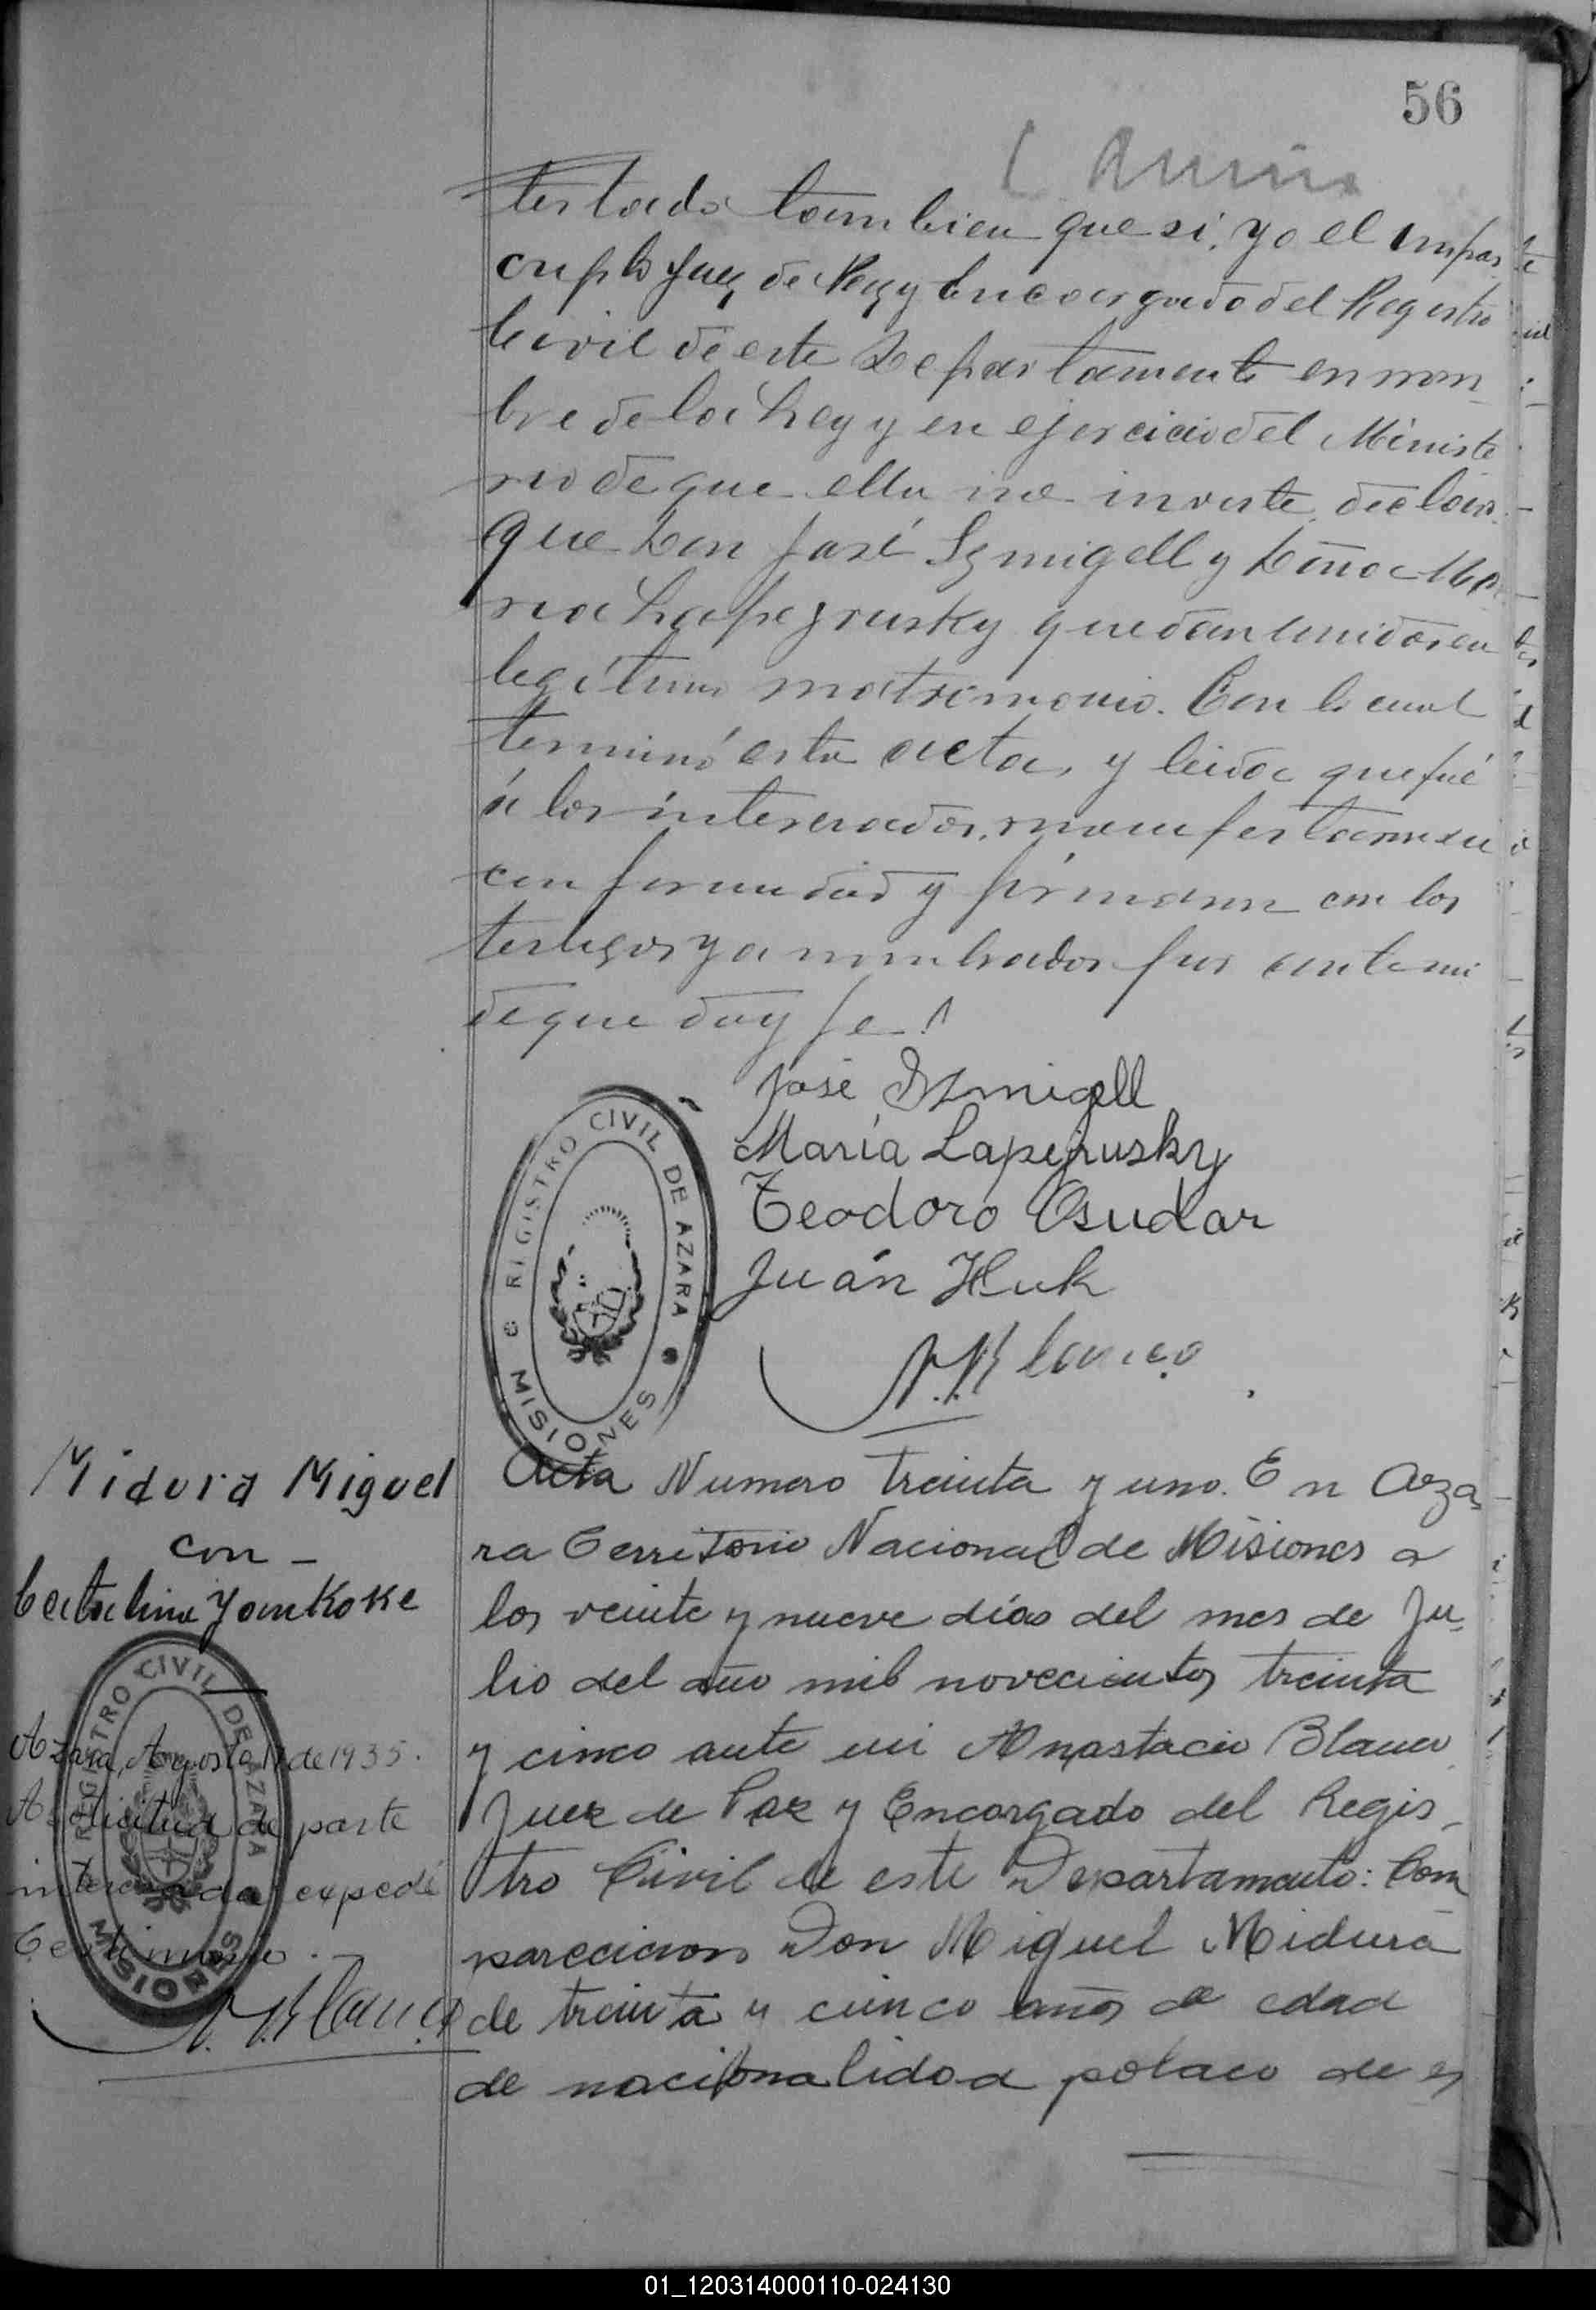 56
testado tambien que si, yo el
Juez de Paz y Encargado del Registro
Civil de este Departamento en nom
bre de la Ley y en ejercicio del Ministe
rio de que ella me inviste, declaro
que Don José Szmigell y Doña Ma
ria Lapejrusky quedan unidos en
legítimo matrimonio. Con lo cual
terminó esta acta, y leida que fué
á los interesados, manifestaron su
conformidad y firmaron con los
testigos ya nombrados por ante mi
de que doy fe.
José Szmigell
María Lapejrusky
Teodoro Osudar
Juán Huk
A. Blanco
REGISTRO CIVIL DE AZARA
MISIONES
Midura Miguel
con –
Catalina Yankoske
REGISTRO CIVIL DE AZARA
MISIONES
Azara, Agosto 1 de 1935.
A solicitud de parte
interesada expedí
Testimonio.
A. Blanco
Acta Numero treinta y uno. En Aza-
ra Territorio Nacional de Misiones a
los veinte y nueve días del mes de Ju-
lio del año mil novecientos treinta
y cinco ante mi Anastacio Blanco
Juez de Paz y Encargado del Regis-
tro Civil de este Departamento: Com
parecieron Don Miguel Midura
de treinta y cinco años de edad
de nacionalidad polaco de es
01_120314000110-024130